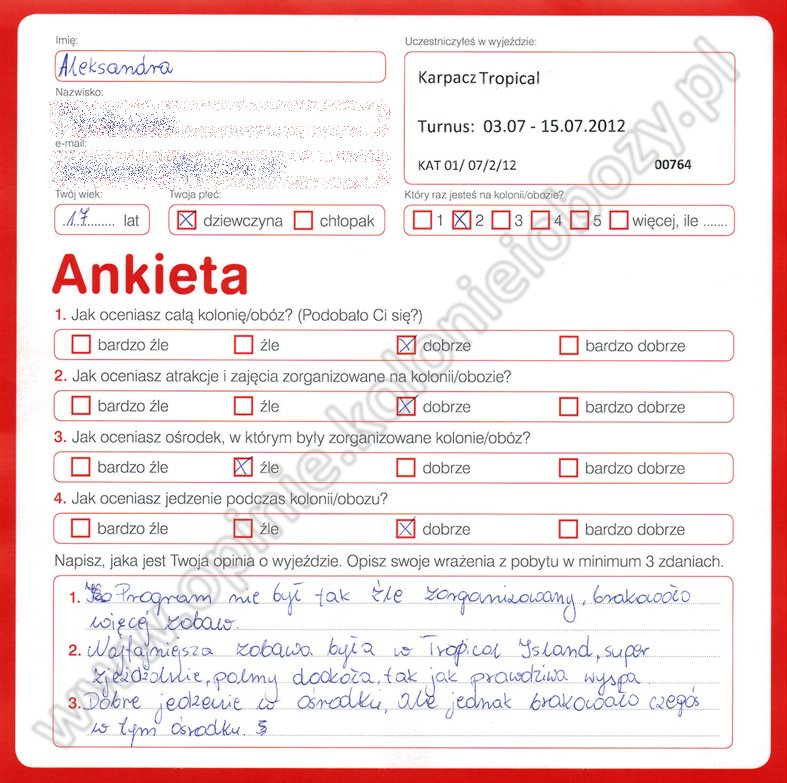 Imię:
Uczestniczyłeś w wyjeździe:
Aleksandra
Karpacz Tropical
Nazwisko:
Turnus: 03.07 - 15.07.2012
e-mail:
KAT 01/ 07/2/12 00764
Twój wiek: Twoja płeć: Który raz jesteś na kolonii/obozie?
17 lat dziewczyna chłopak 1 2 3 4 5 więcej, ile .......
Ankieta
1. Jak oceniasz całą kolonię/obóz? (Podobało Ci się?)
bardzo źle źle dobrze bardzo dobrze
2. Jak oceniasz atrakcje i zajęcia zorganizowane na kolonii/obozie?
bardzo źle źle dobrze bardzo dobrze
3. Jak oceniasz ośrodek, w którym były zorganizowane kolonie/obóz?
bardzo źle źle dobrze bardzo dobrze
4. Jak oceniasz jedzenie podczas kolonii/obozu?
bardzo źle źle dobrze bardzo dobrze
Napisz, jaka jest Twoja opinia o wyjeździe. Opisz swoje wrażenia z pobytu w minimum 3 zdaniach.
1. Program nie był tak źle zorganizowany, brakowało
więcej zabaw.
2. Najfajniejsza zabawa była w Tropical Island, super
zjeżdżalnie, palmy dookoła, tak jak prawdziwa wyspa.
3. Dobre jedzenie w ośrodku, ale jednak brakowało czegoś
w tym ośrodku.
www.opinie.kolonieiobozy.pl